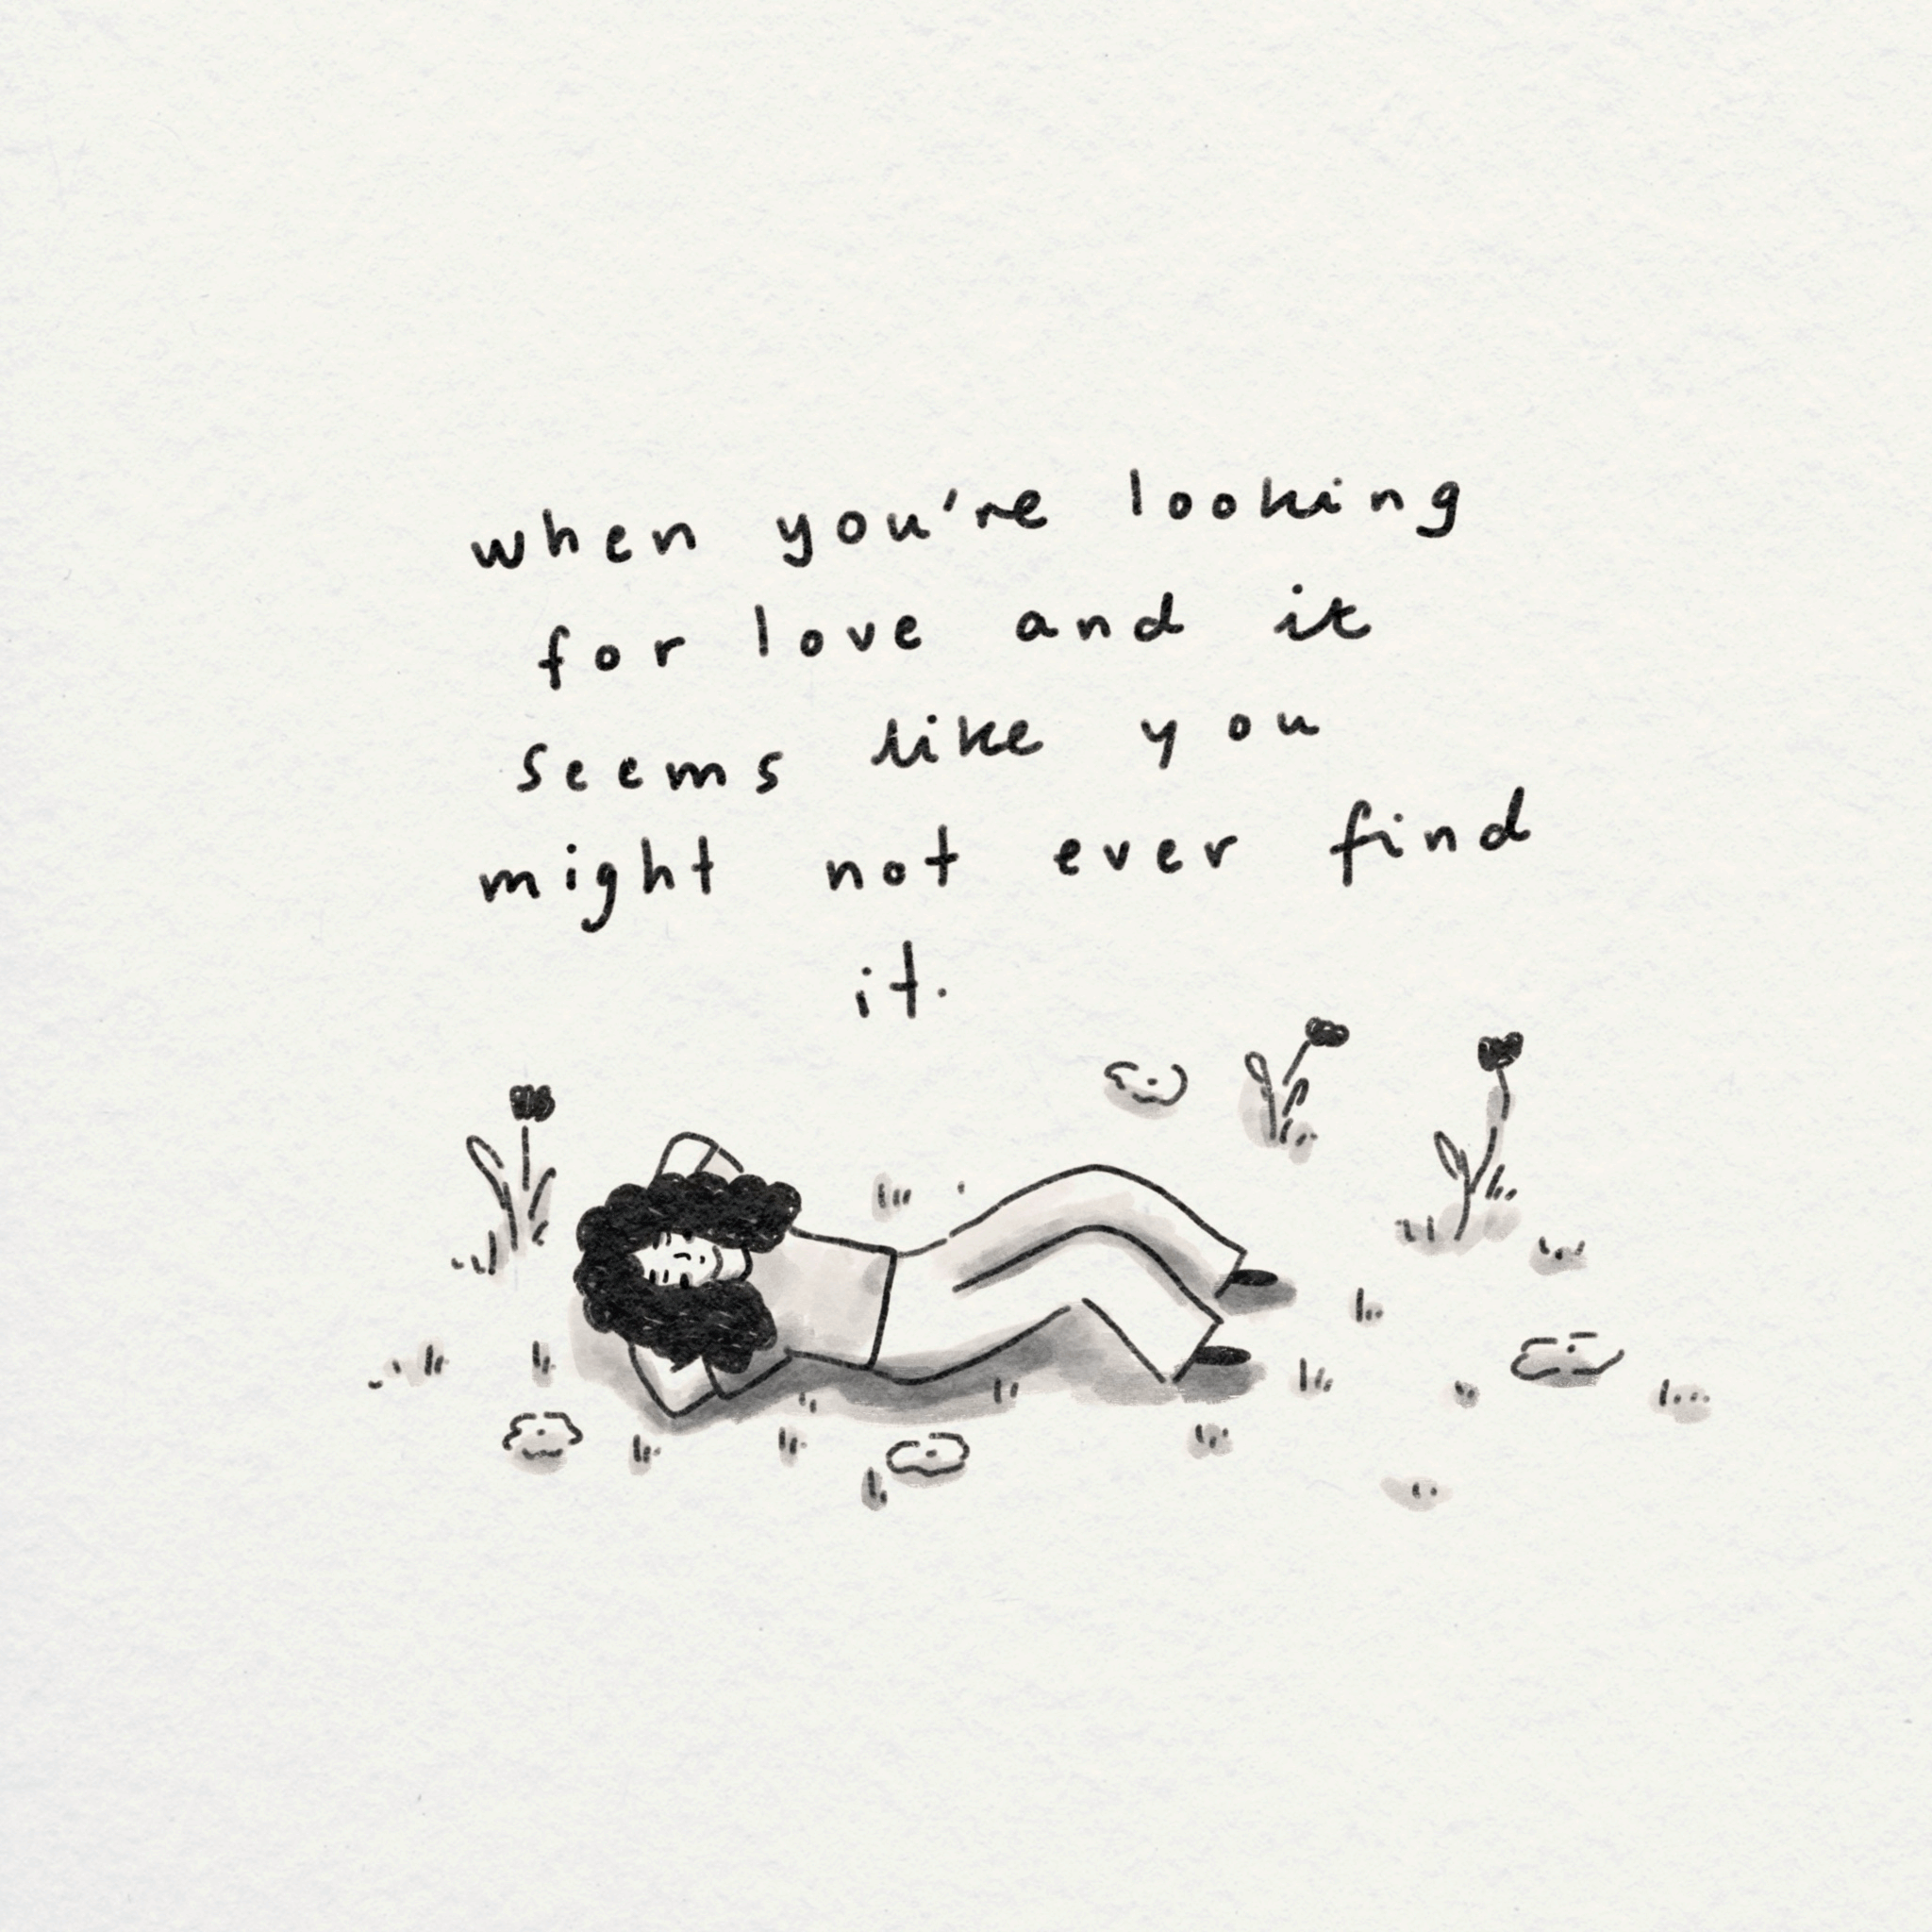 when you're looking
for love and it
seems like you
might not ever find
it.